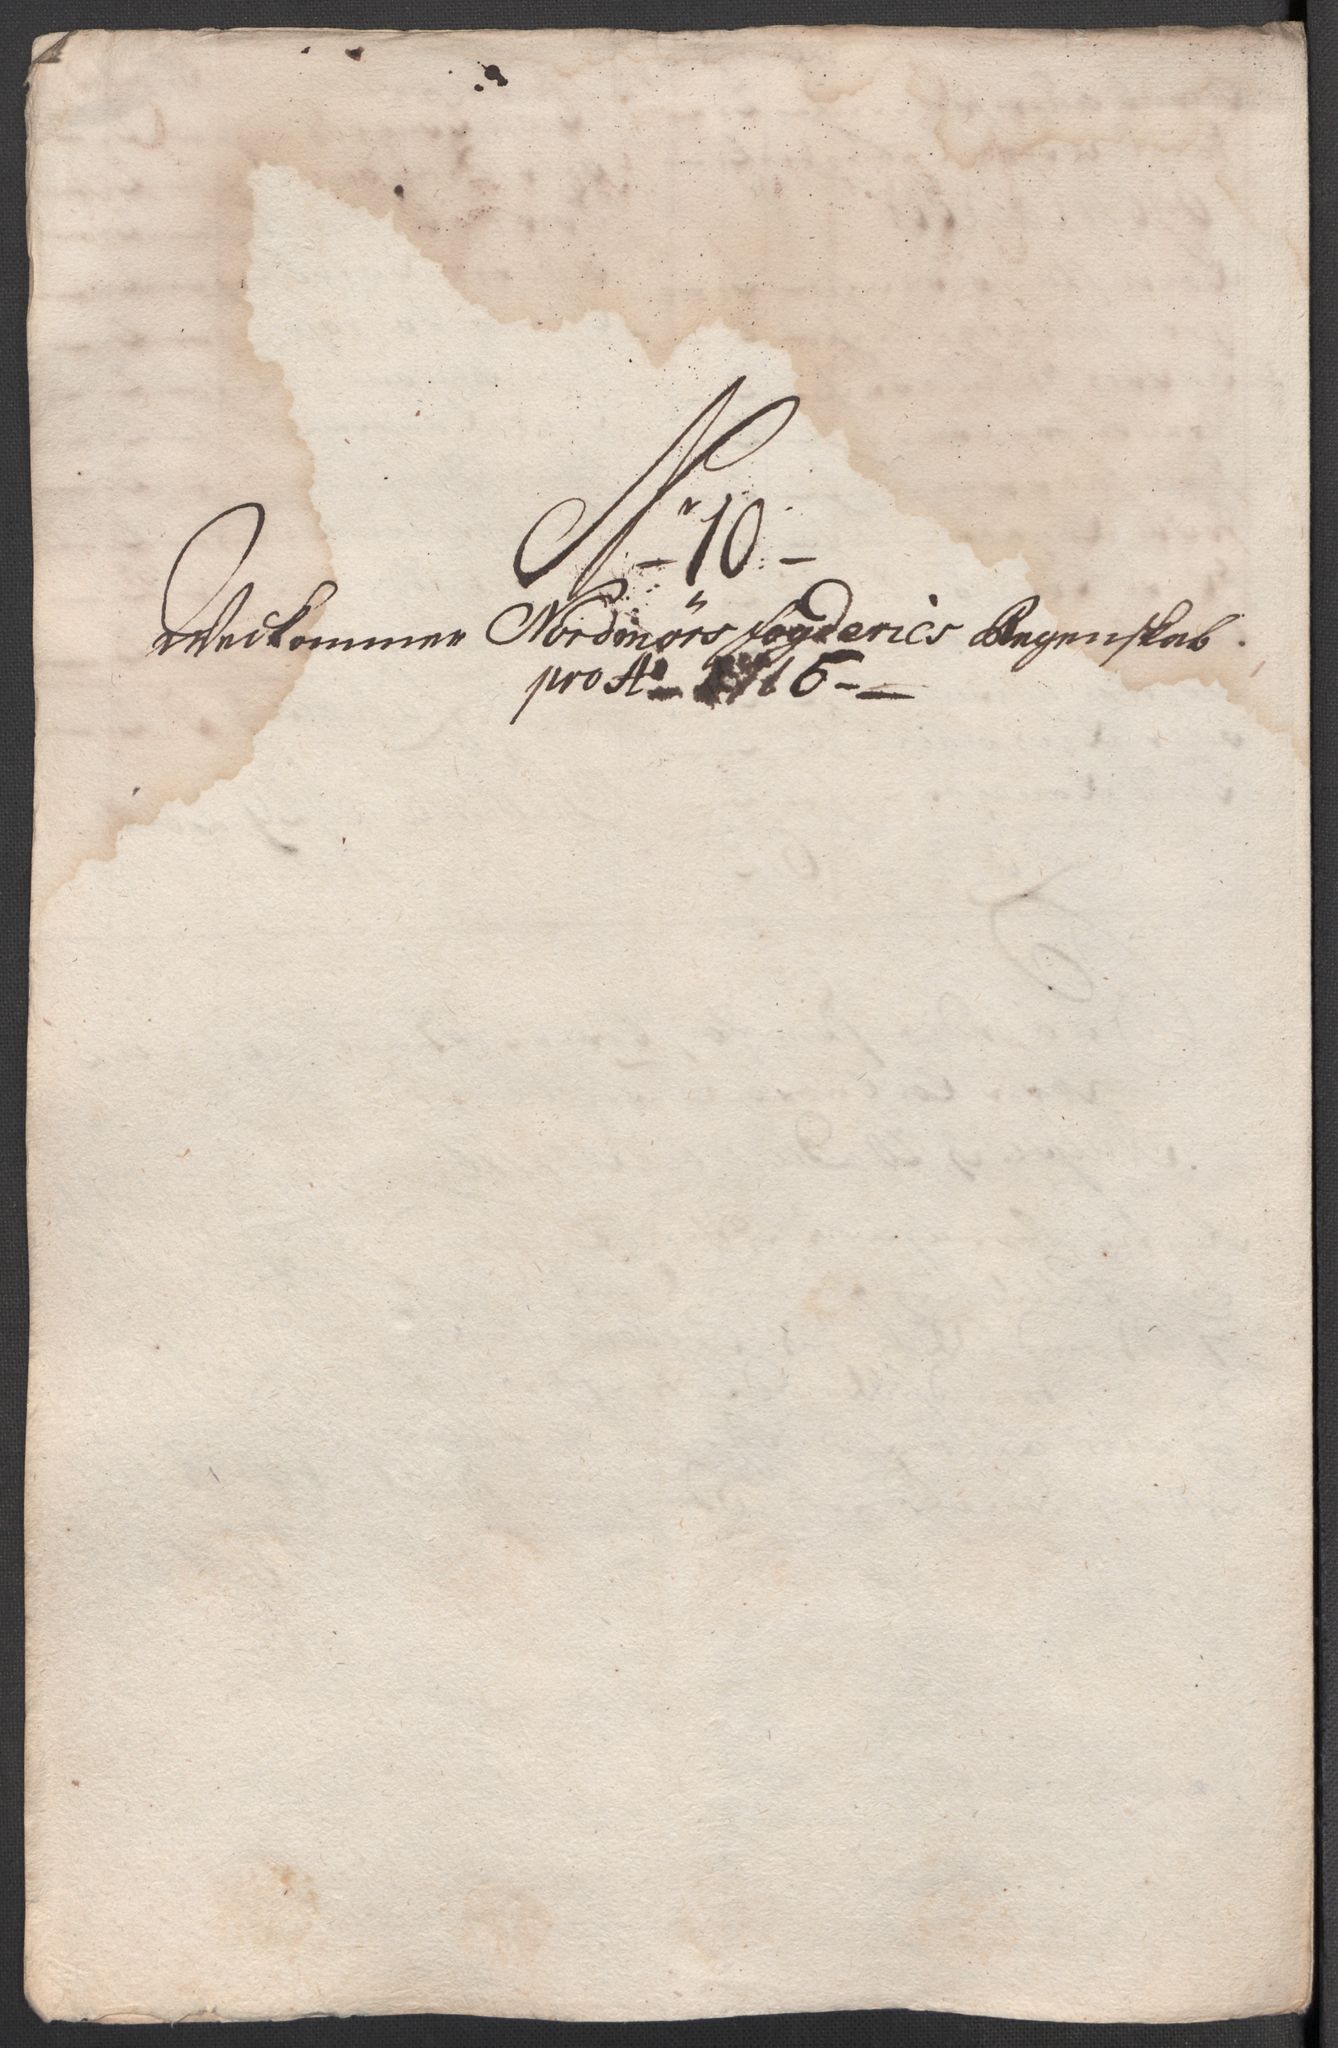 Nr 10
Vedkommer Nordmørs fogderies Regenskab.
pro Ao 1715